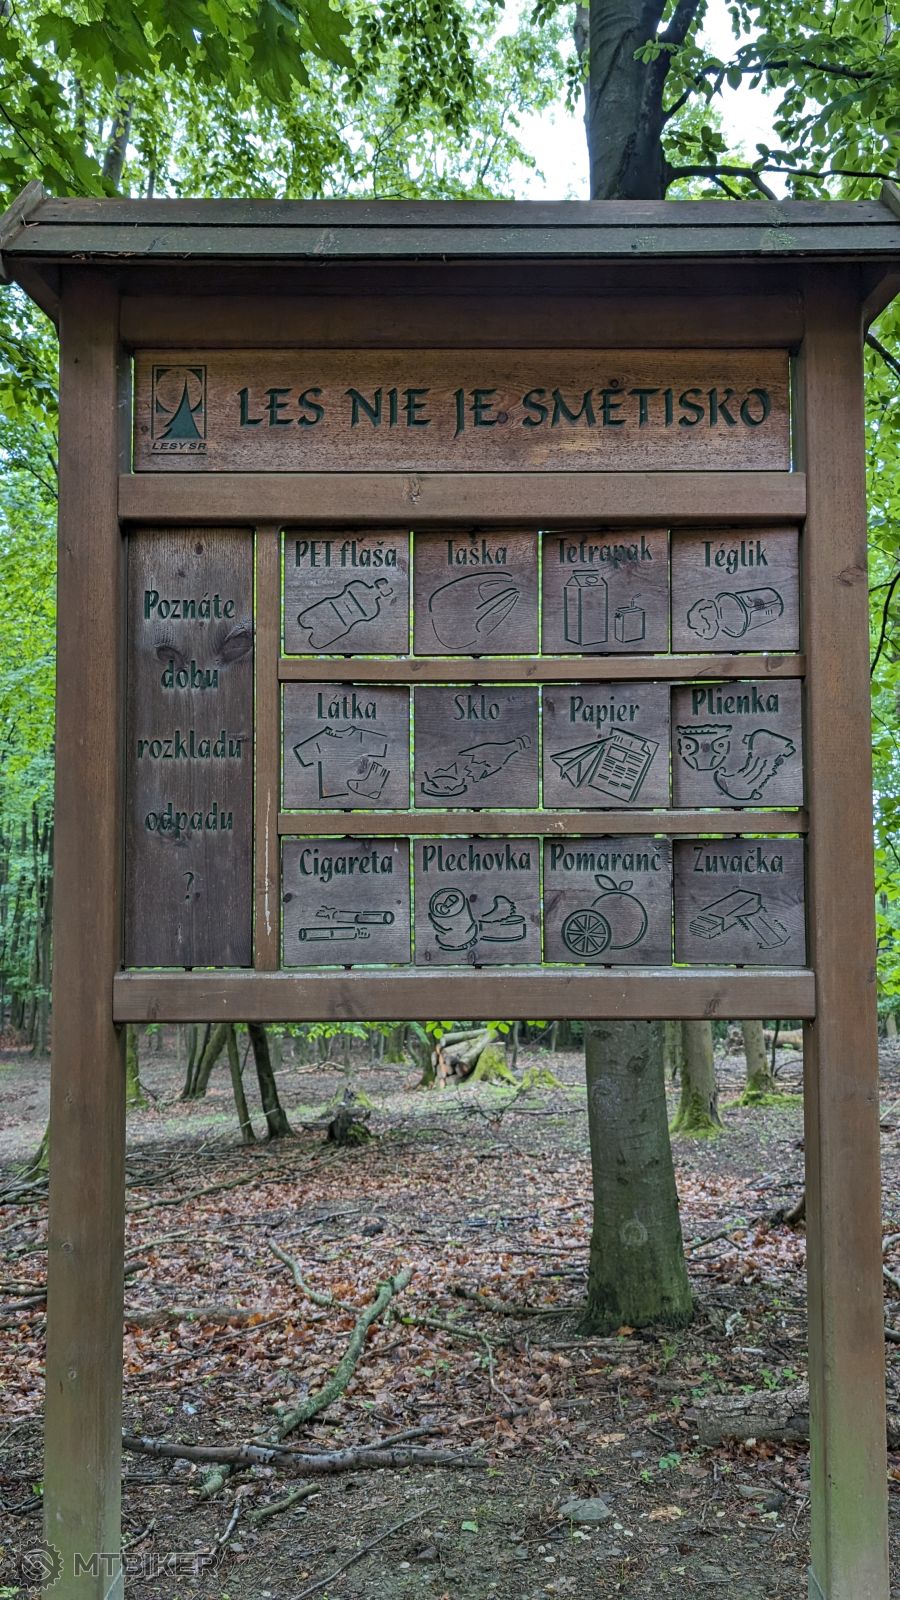 LES NIE JE SMETISKO
LESY SR
Poznáte
dobu
rozkladu
odpadu
?
PET fľaša
Taška
Tetrapak
Téglik
Látka
Sklo
Papier
Plienka
Cigareta
Plechovka
Pomaranč
Žuvačka
MTBIKER